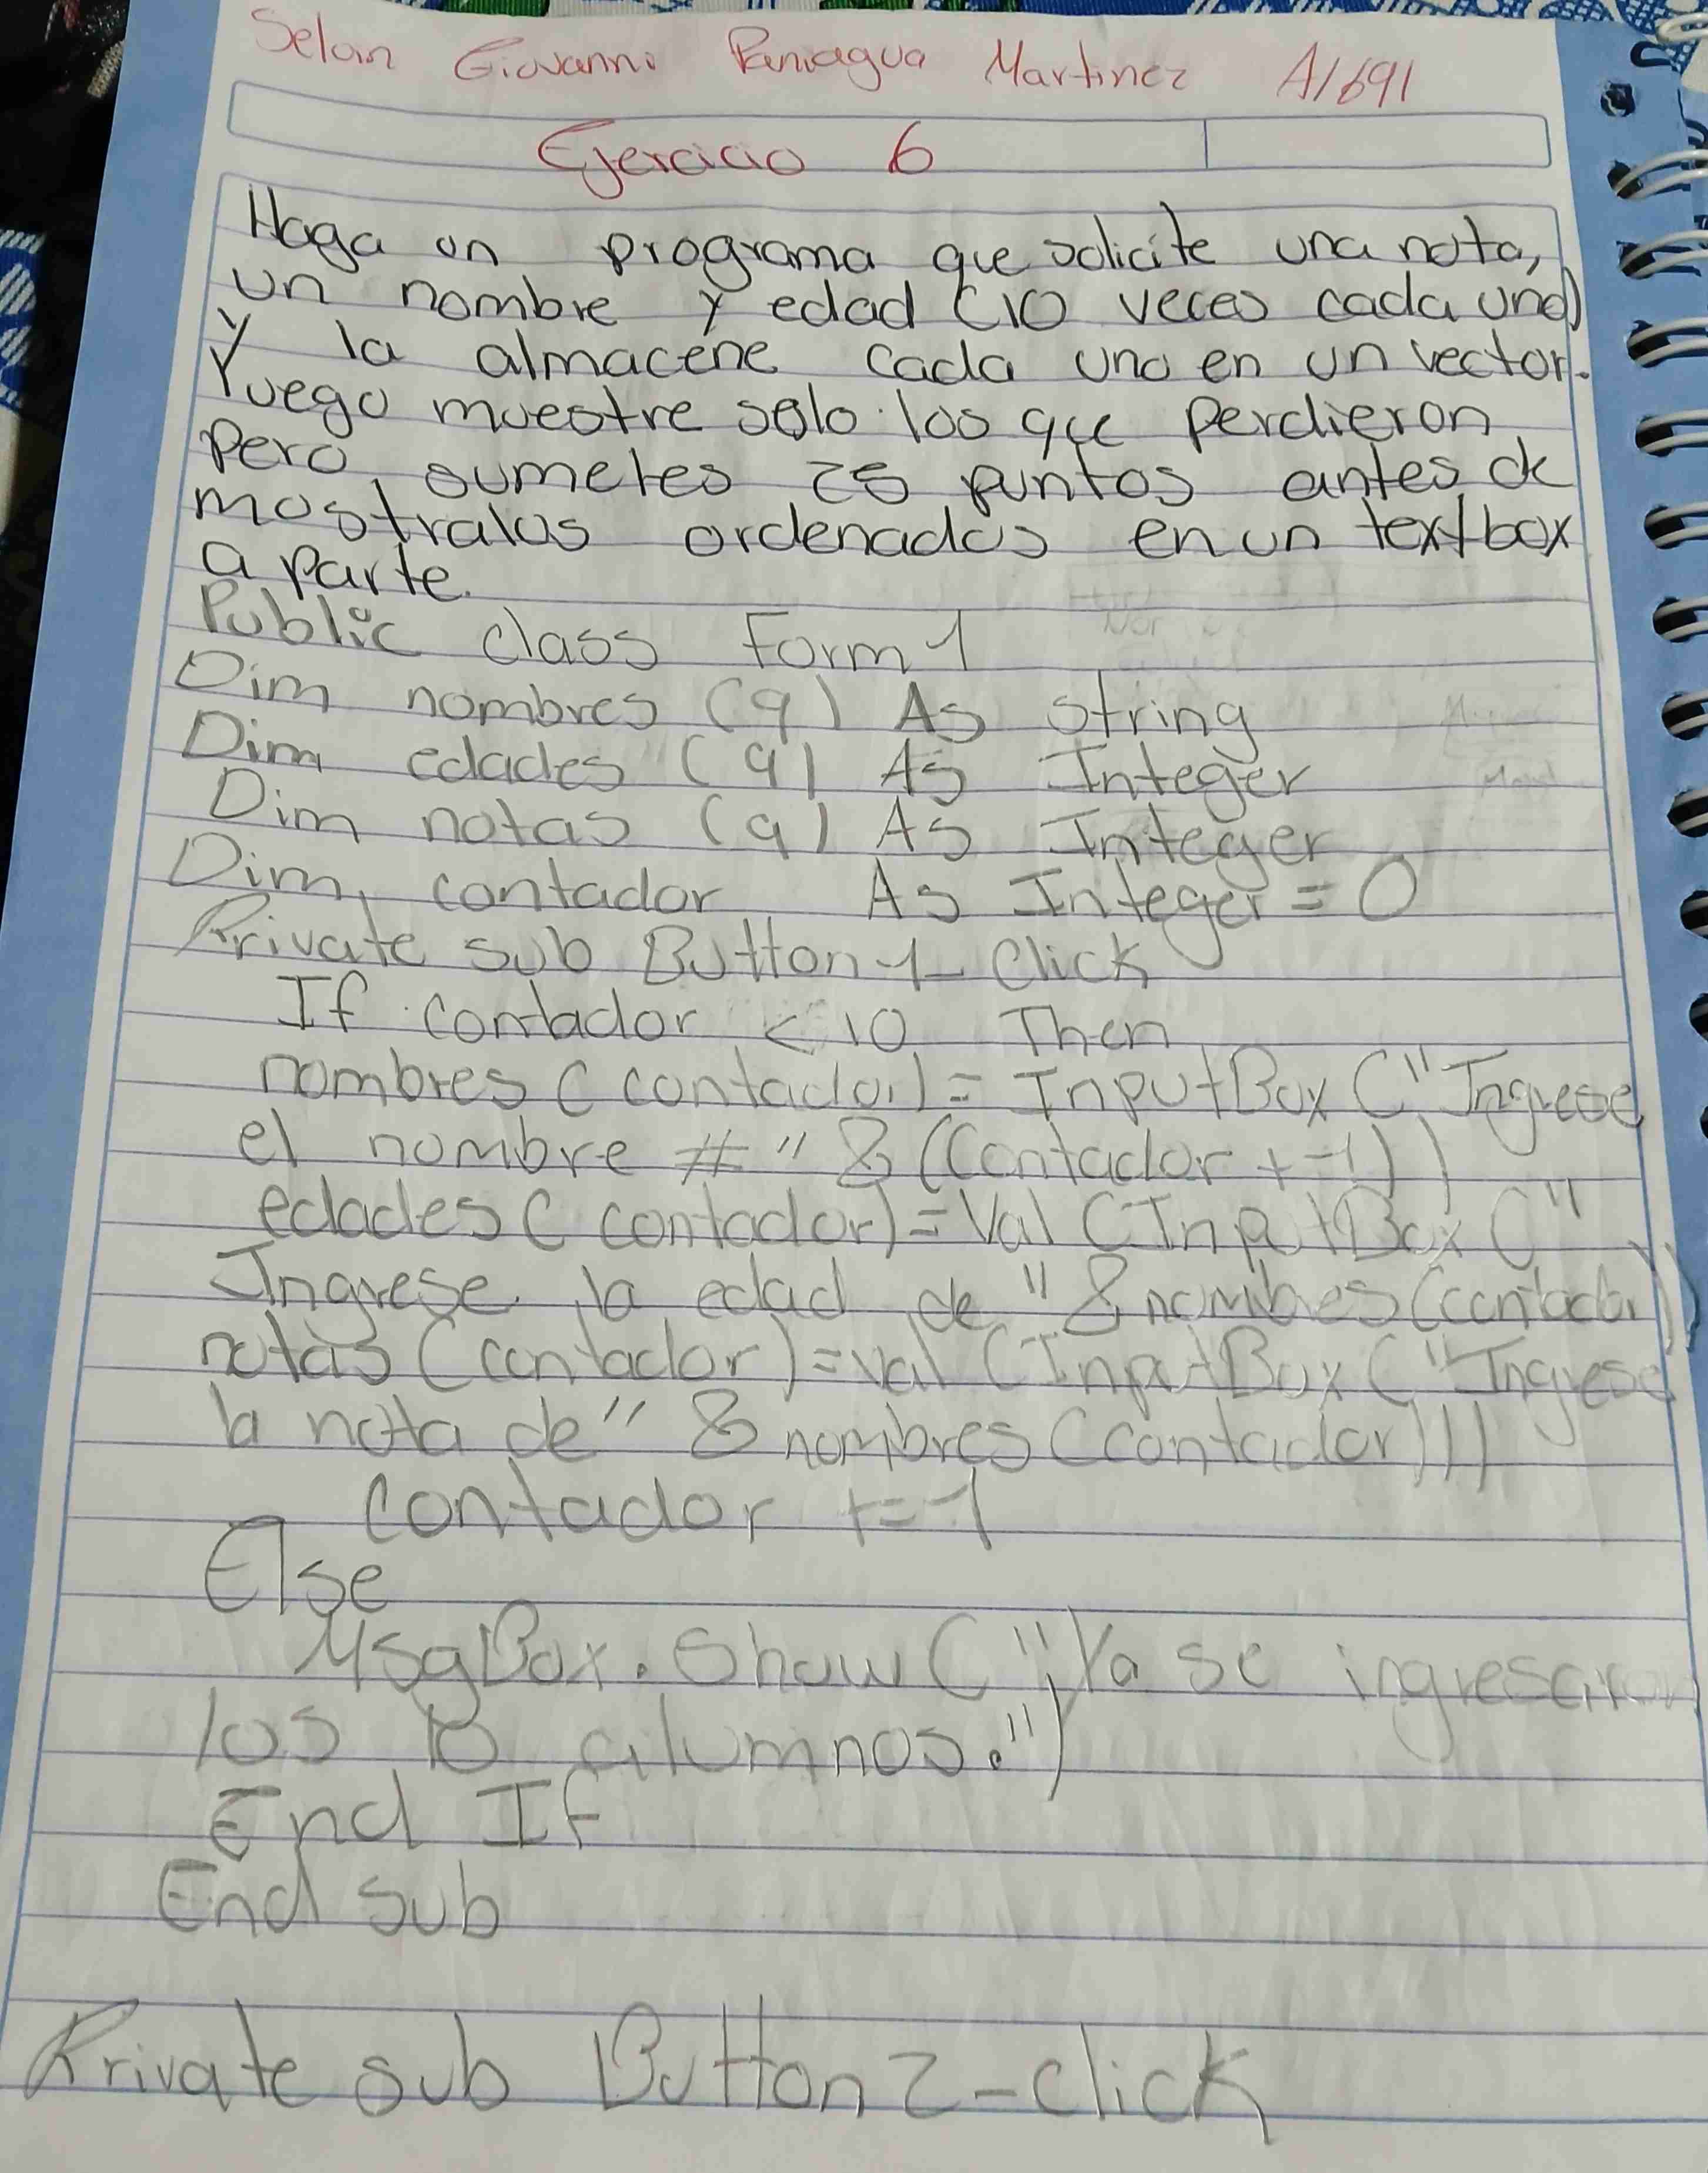 Selvin Giovanni Paniagua Martinez A1691
Ejercicio 6
Haga un programa que solicite una nota,
un nombre y edad (10 veces cada uno)
y la almacene cada uno en un vector.
Yuego muestre solo los que perdieron
pero sumeles 25 puntos antes de
mostralos ordenados en un textbox
a parte.
Public class Form1
Dim nombres (9) As string
Dim edades (9) As Integer
Dim notas (9) As Integer
Dim contador As Integer = 0
Private sub Button1_Click
If contador < 10 Then
nombres (contador) = InputBox ("Ingrese
el nombre # " & (Contador + 1))
edades (contador) = Val (InputBox ("
Ingrese la edad de " & nombres (contador)))
notas (contador) = val (InputBox ("Ingrese
la nota de" & nombres (contador)))
contador += 1
Else
MsgBox.Show ("¡Ya se ingresaron
los 10 alumnos.")
End If
End sub
Private sub Button2_click